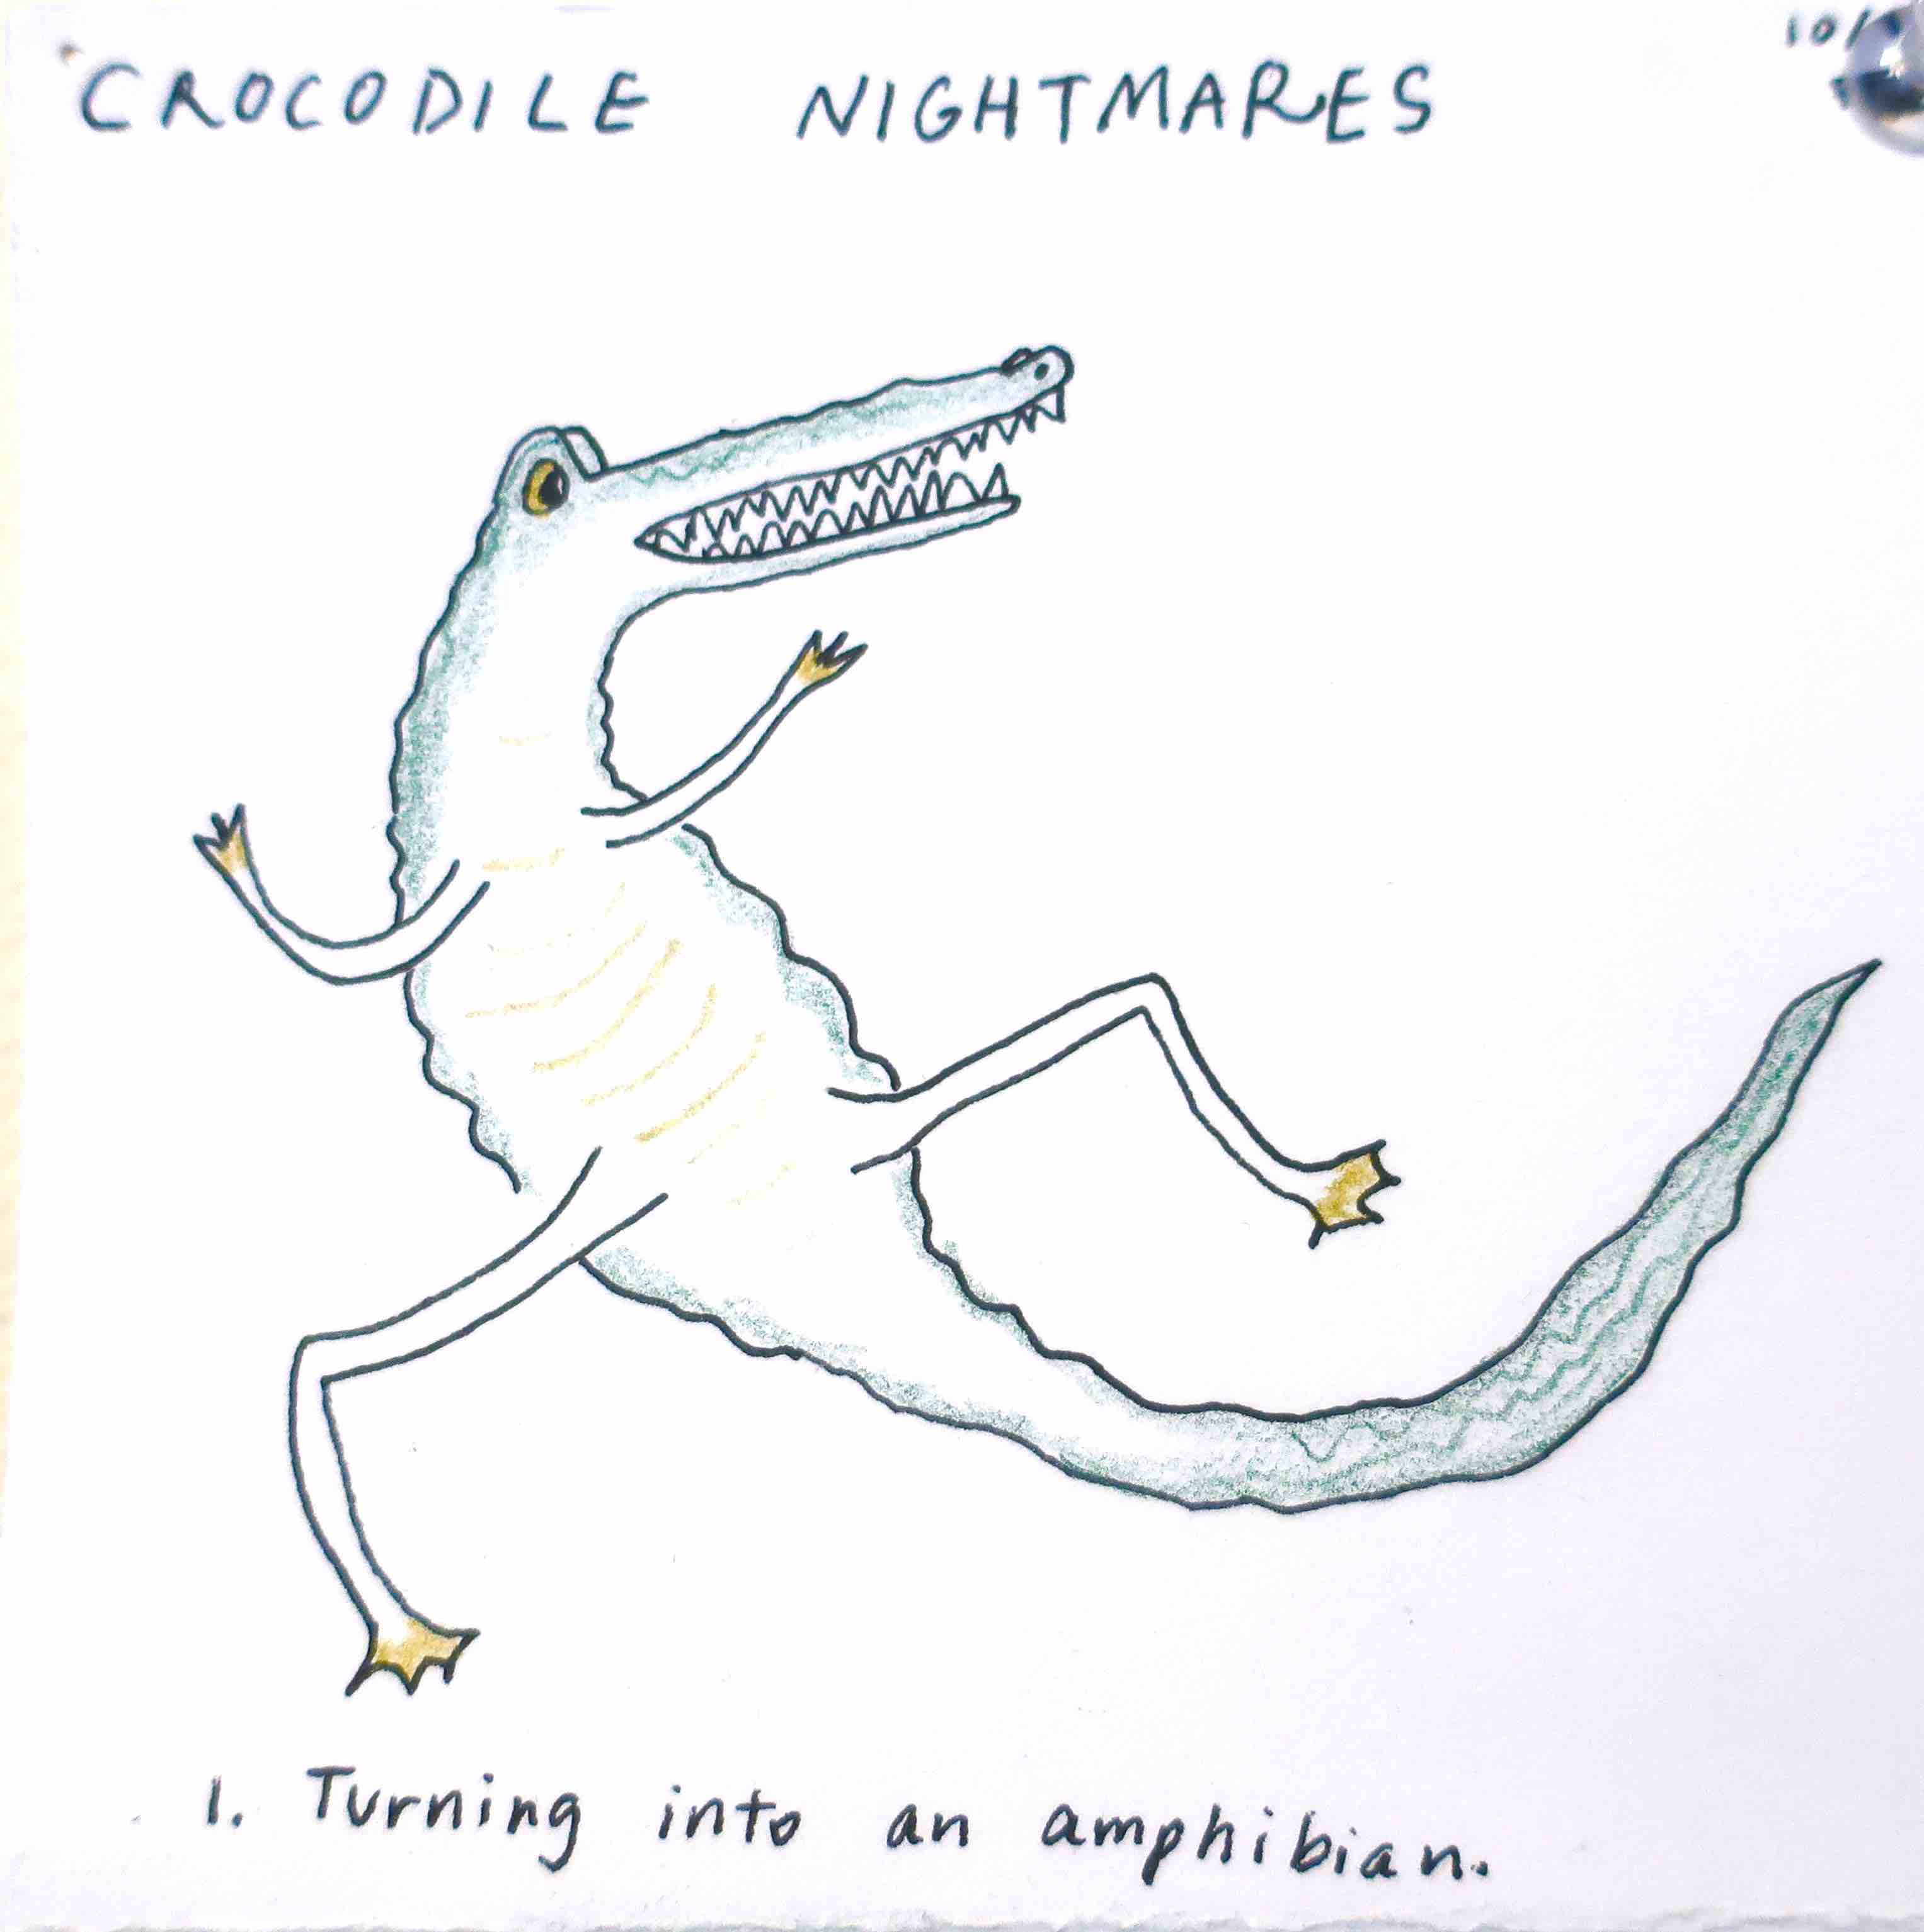 CROCODILE NIGHTMARES
10/
1. Turning into an amphibian.